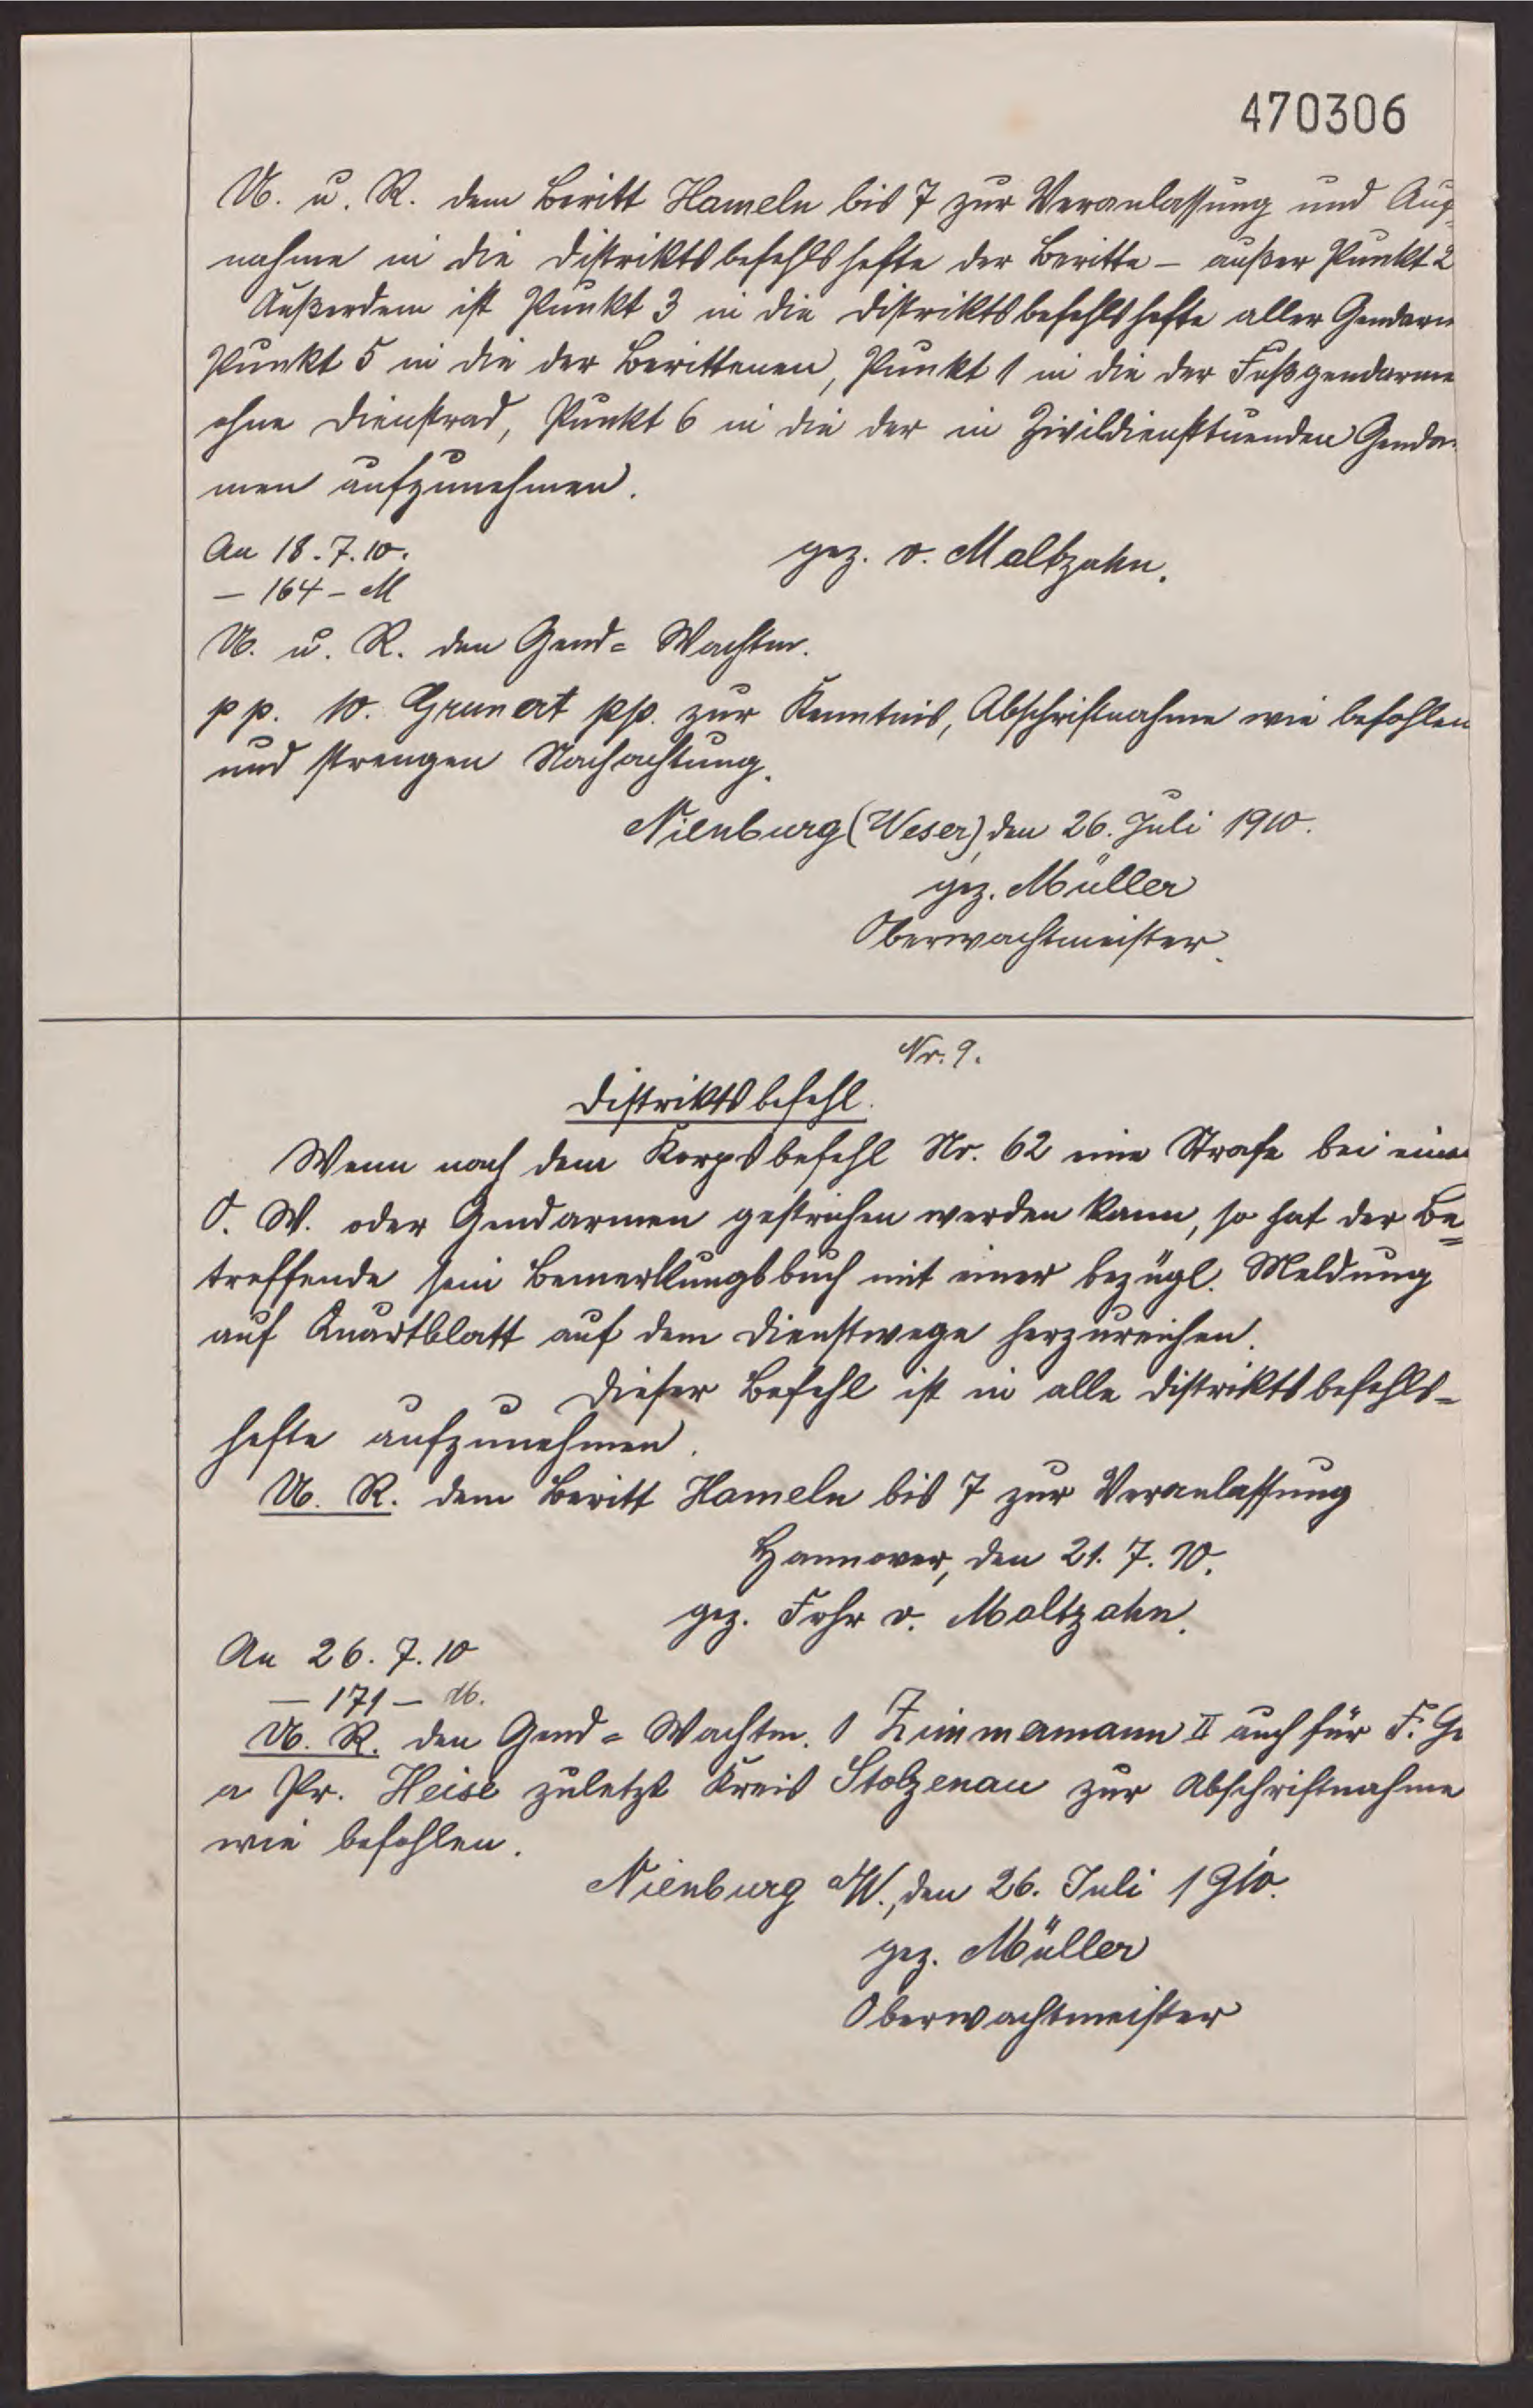 470306
U. u. R. dem Beritt Hameln bis 7 zur Veranlassung und Auf-
nahme in die Distriktsbefehlshefte der Beritte – außer Punkt 2
Außerdem ist Punkt 3 in die Distriktsbefehlshefte aller Gendarm
Punkt 5 in die der Berittenen, Punkt 1 in die der Fußgendarme
ohne Dienstrad, Punkt 6 in die der in Zivildiensttuenden Genda
men aufzunehmen.
An 18.7.10. gez. v. Maltzahn.
– 164 – M
U. u. R. den Gend= Wachtm.
pp. 10. Grunert pp. zur Kenntnis, Abschriftnahme wie befohlen
und strengen Nachachtung.
Nienburg (Weser), den 26. Juli 1910.
gez. Müller
Oberwachtmeister.
Nr. 9.
Distriktsbefehl.
Wenn nach dem Korpsbefehl Nr. 62 eine Strafe bei eine
O. W. oder Gendarmen gestrichen werden kann, so hat der Be=
treffende sein Bemerkungsbuch mit einer bezügl. Meldung
auf Quartblatt auf dem Dienstwege herzureichen.
Dieser Befehl ist in alle Distriktsbefehls=
hefte aufzunehmen.
U. R. dem Beritt Hameln bis 7 zur Veranlassung
Hannover, den 21. 7. 10.
gez. Frhr v. Maltzahn.
An 26. 7. 10
– 171 – M.
U. R. den Gend= Wachtm. 1 Zimmermann II auch für F. Ge
a Pr. Heise zuletzt Kreis Stolzenau zur Abschriftnahme
wie befohlen.
Nienburg a/W., den 26. Juli 1910.
gez. Müller
Oberwachtmeister